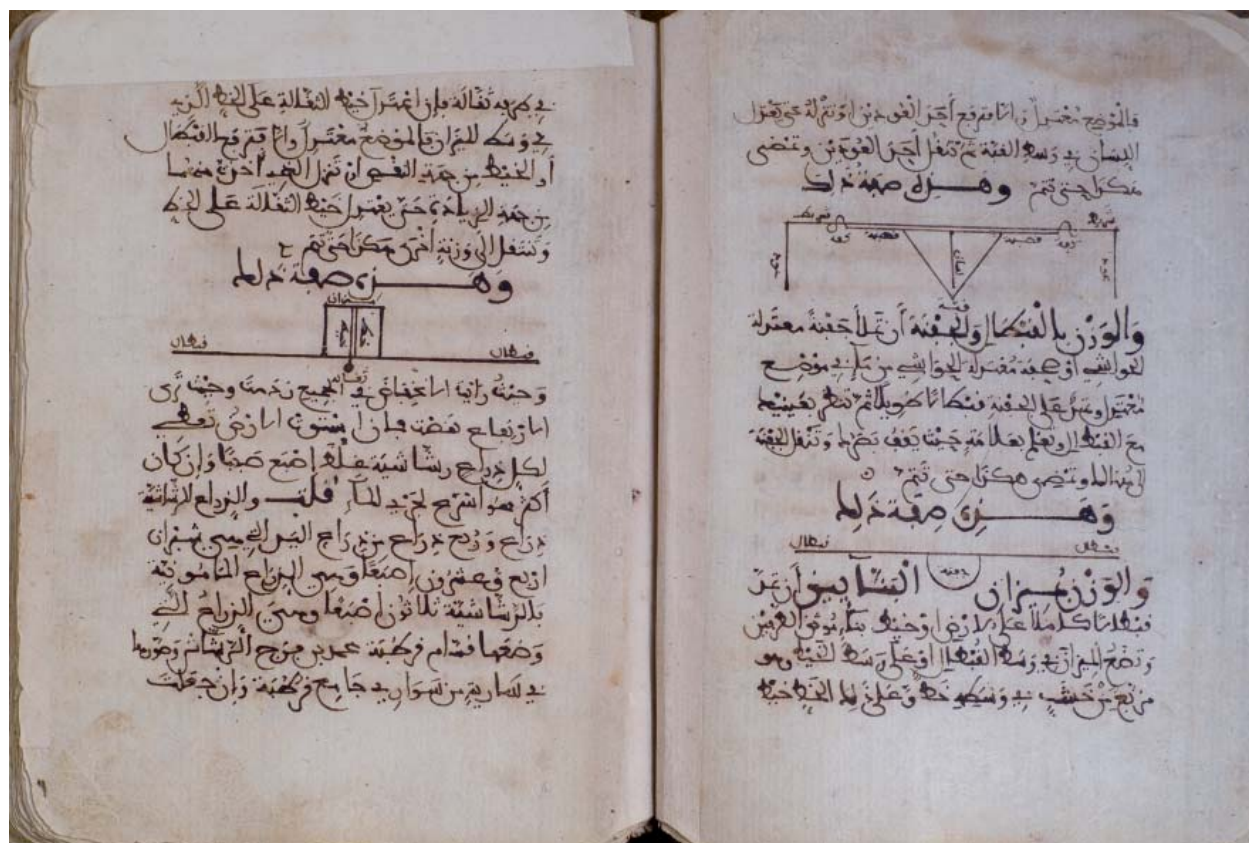 فالموضع معتدل وإلا فترفع أحد العودين أو تنزله حتى يعتدل
اللسان في وسط القبة ثم تنقل أحد العودين وتمضي
هكذا حتى تتم وهذه صفة ذلك
شريط
شريط
قصبة
قصبة
لسان
عود
عود
قبة
والوزن بالقبطال والجفنة أن تملأ جفنة معتدلة
الحواشي أو صحفة معتدلة الحواشي من ماء في موضع
معتدل وتمد على الجفنة قبطالا طويلا ثم تنظر بعينيك
مع القبطال ويعلم بعلامة حيث يقف نظرك وتنقل الجفنة
وتمضي هكذا حتى تتم
وهذه صفة ذلك
قبطال
قبطال
جفنة
والوزن بميزان البنايين أن تمد
قبطالا كاملا على الأرض أو خيط بناء موثق الطرفين
وتضع الميزان في وسط القبطال أو على وسط الخيط وهو
مربع من خشب في وسطه خط وعلى ذلك الخط خيط
في طرفه ثقالة فإن اعتدل خيط الثقالة على الخط الذي
في وسط الميزان فالموضع معتدل وإلا فترفع القبطال
أو الخيط من جهة النقص أو تنزل الجهة الأخرى منهما
من جهة الزيادة حتى يعتدل خيط الثقالة على الخط
وتنتقل إلى وزنة أخرى هكذا حتى تتم
وهذه صفة ذلك
ميزان
قبطال
قبطال
ثقالة
وحيث رأيت انخفاض في الجميع زدمت وحيث ترى
ارتفاع نقضت فإذا استوت الأرض تعطي
لكل ذراع رشاشية ثقلة إصبع صبا وإن كان
أكثر هو أسرع لجري الماء قلت والذراع الرشاشية
ذراع وربع ذراع من ذراع اليد التي هي شبران
أربع وعشرون إصبعا وهي الذراع المأمونية
بالرشاشية ثلاثون إصبعا وهي الذراع التي
وضعها قدام قرطبة محمد بن فرج الرشاش وصورها
في سارية من سواري جامع قرطبة وإن جعلت